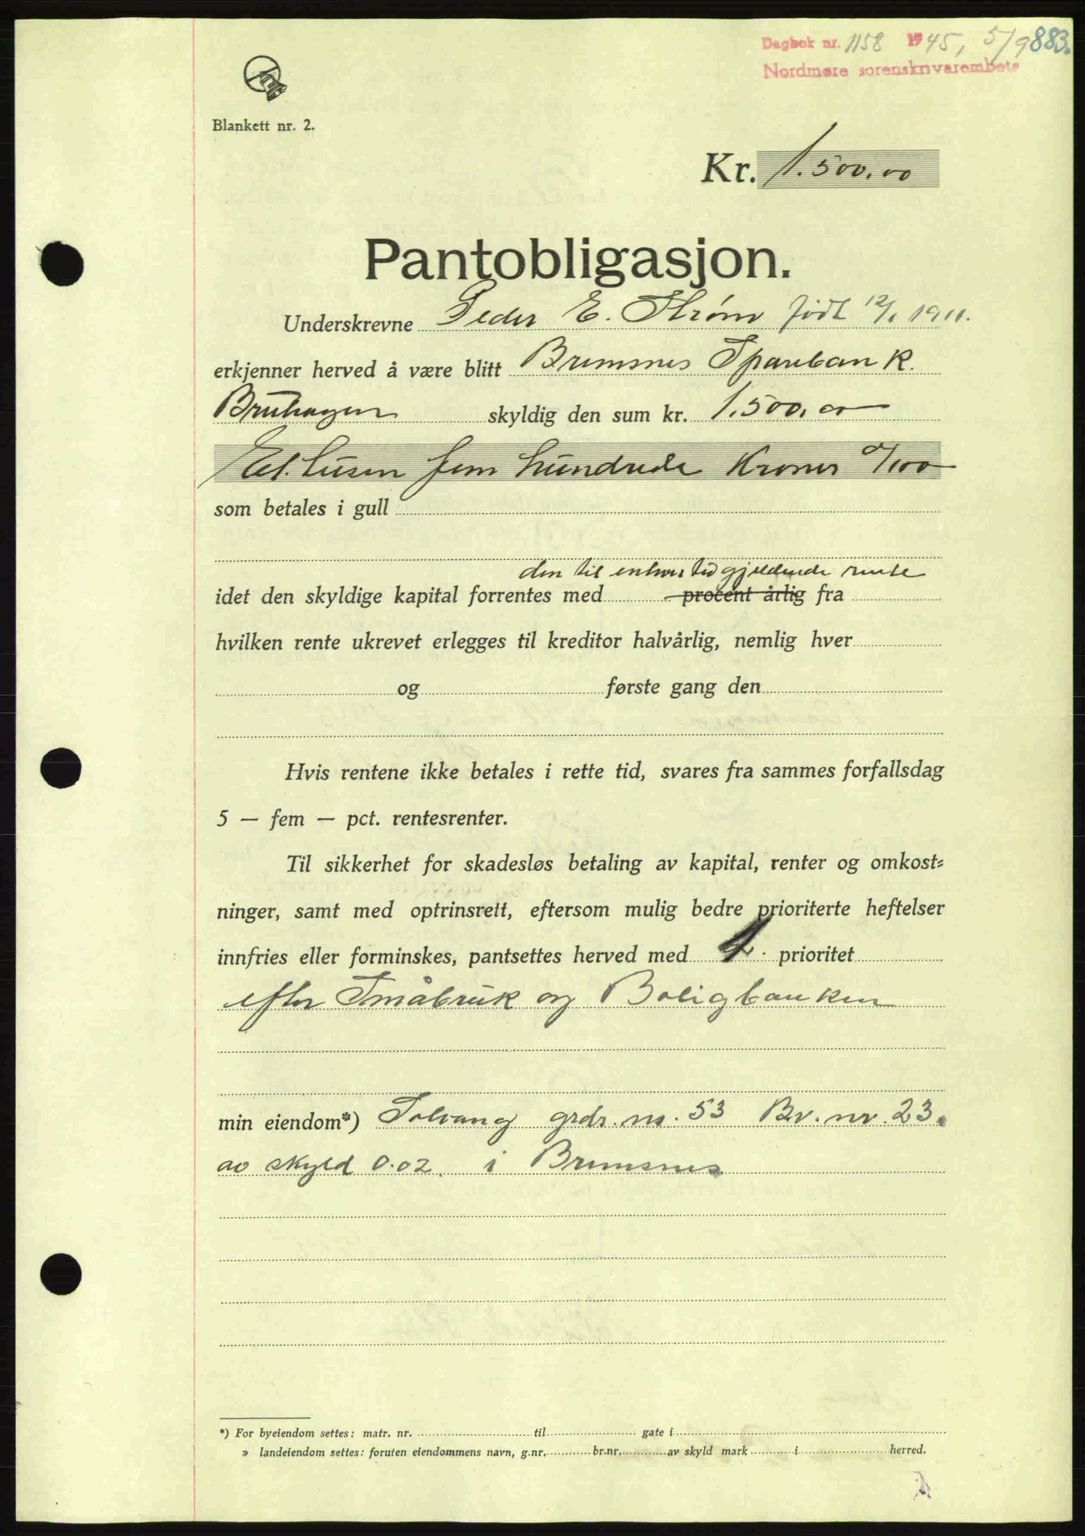 Dagbok nr. 1158 1945, 5/9 883.
Nordmøre sorenskrivarembete
Blankett nr. 2.
Kr. 1.500,00
Pantobligasjon.
Underskrevne Peder E. Strøm født 12/1 1911.
erkjenner herved å være blitt Bremsnes Sparebank.
Bruhagen skyldig den sum kr. 1.500,00
Et tusen fem hundrede Kroner 0/100
som betales i gull
den til enhver tid gjeldende rente
idet den skyldige kapital forrentes med procent årlig fra
hvilken rente ukrevet erlegges til kreditor halvårlig, nemlig hver
og første gang den
Hvis rentene ikke betales i rette tid, svares fra sammes forfallsdag
5 — fem — pct. rentesrenter.
Til sikkerhet for skadesløs betaling av kapital, renter og omkost-
ninger, samt med optrinsrett, eftersom mulig bedre prioriterte heftelser
innfries eller forminskes, pantsettes herved med prioritet
efter Småbruk og Boligbanken
min eiendom*) Solvang grdr. nr. 53 Br. nr. 23.
av skyld 0.02. i Bremsnes
*) For byeiendom settes: matr. nr. til gate i
» landeiendom settes: foruten eiendommens navn, g.nr. br.nr. av skyld mark i herred.